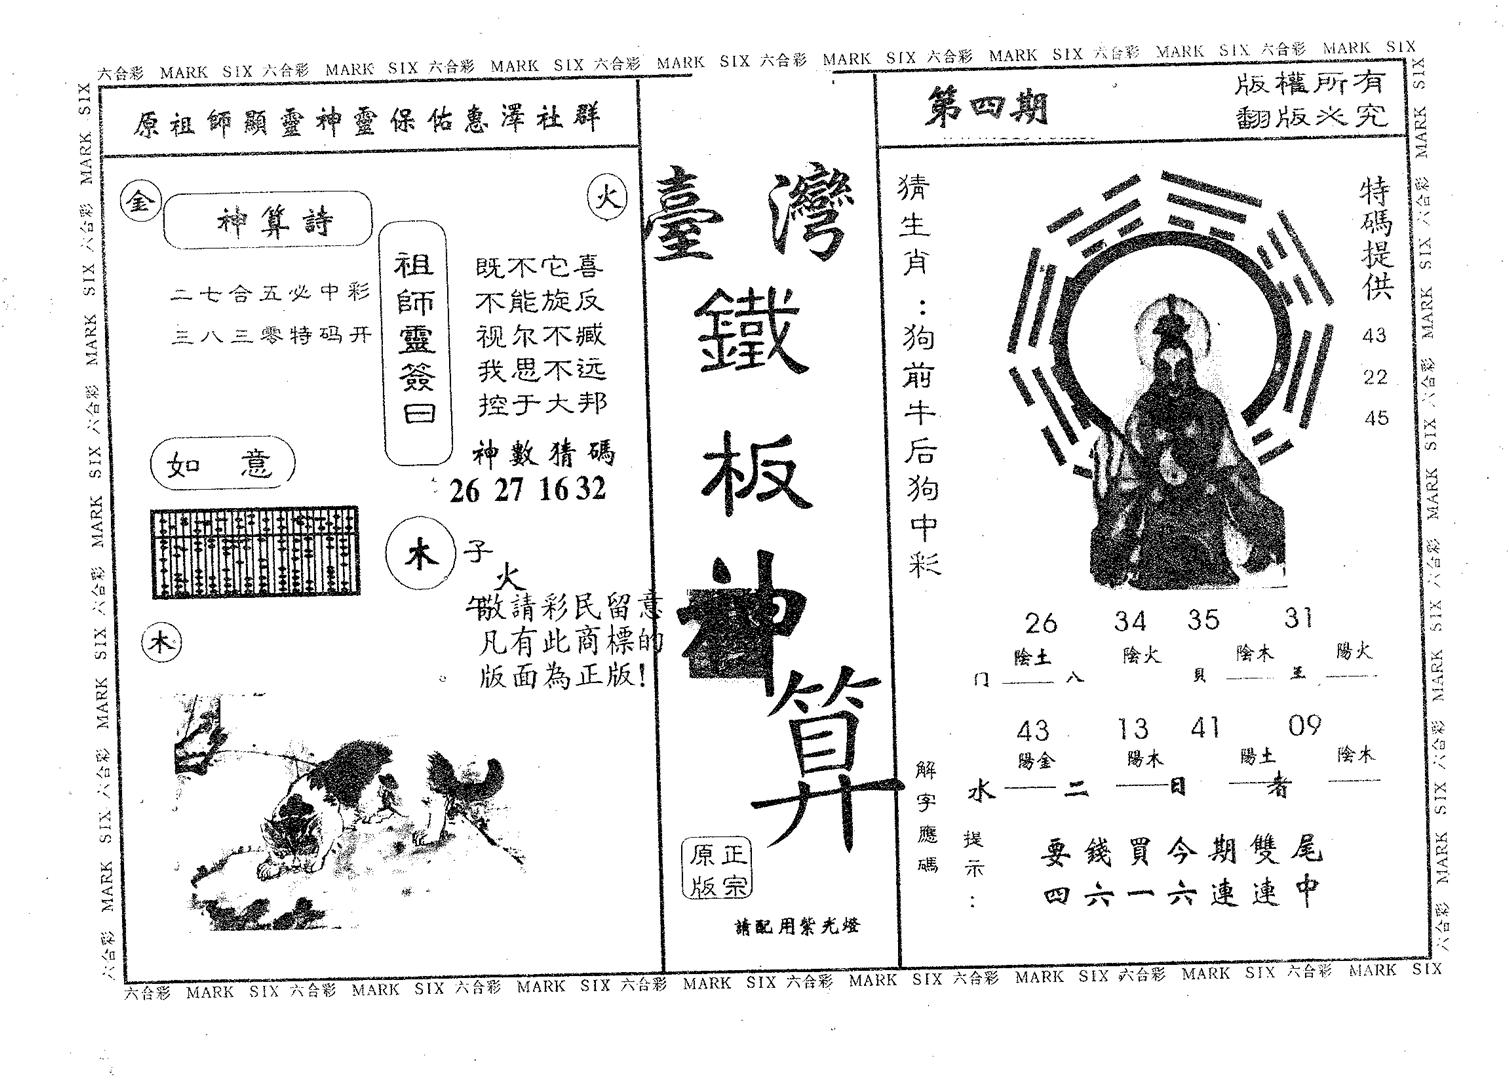 六合彩 MARK SIX 六合彩 MARK SIX 六合彩 MARK SIX 六合彩 MARK SIX 六合彩 MARK SIX 六合彩 MARK SIX 六合彩 MARK SIX 六合彩 MARK SIX
原祖師顯靈神靈保佑惠澤社群
金
火
神算詩
二七合五必中彩
三八三零特码开
祖師靈簽曰
既不它喜
不能旋反
视尔不臧
我思不远
控于大邦
神數猜碼
26 27 16 32
如意
木
子
火
午
敬請彩民留意
凡有此商標的
版面為正版!
木
臺灣
鐵
板
神
算
正宗
原版
請配用紫光燈
第四期
版權所有
翻版必究
猜生肖：狗前牛后狗中彩
特碼提供
43
22
45
26 34 35 31
陰土 陰火 陰木 陽火
门 八 貝 王
43 13 41 09
陽金 陽木 陽土 陰木
水 二 日 者
解字應碼
提示：
要錢買今期雙尾
四六一六連連中
六合彩 MARK SIX 六合彩 MARK SIX 六合彩 MARK SIX 六合彩 MARK SIX 六合彩 MARK SIX
六合彩 MARK SIX 六合彩 MARK SIX 六合彩 MARK SIX 六合彩 MARK SIX 六合彩 MARK SIX
六合彩 MARK SIX 六合彩 MARK SIX 六合彩 MARK SIX 六合彩 MARK SIX 六合彩 MARK SIX 六合彩 MARK SIX 六合彩 MARK SIX 六合彩 MARK SIX